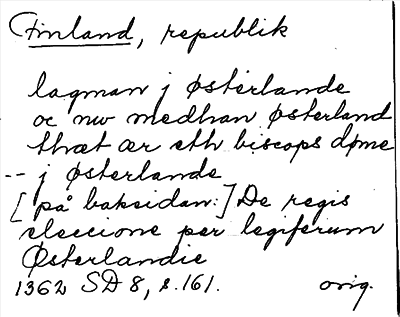 Finland, republik
lagman j Østerlande
oc nw medhan Østerland
thæt ær eth biscops døme
-- j Østerlande
[på baksidan:] De regis
eleccione per legiferum
Østerlandie
1362 SD 8, s. 161. orig.